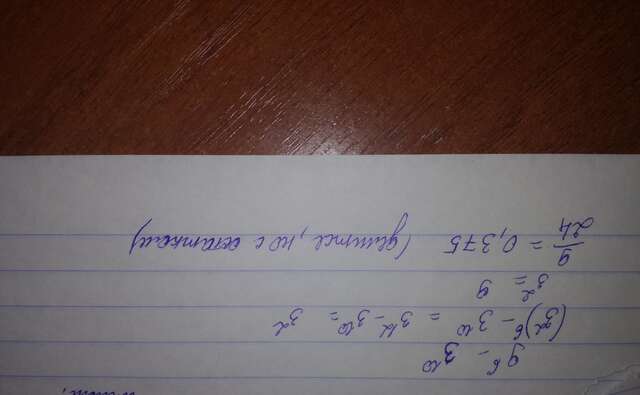 9⁶ - 3¹⁰
(3²)⁶ - 3¹⁰ = 3¹² - 3¹⁰ = 3²
3² = 9
9/24 = 0,375 (делится, но с остатком)